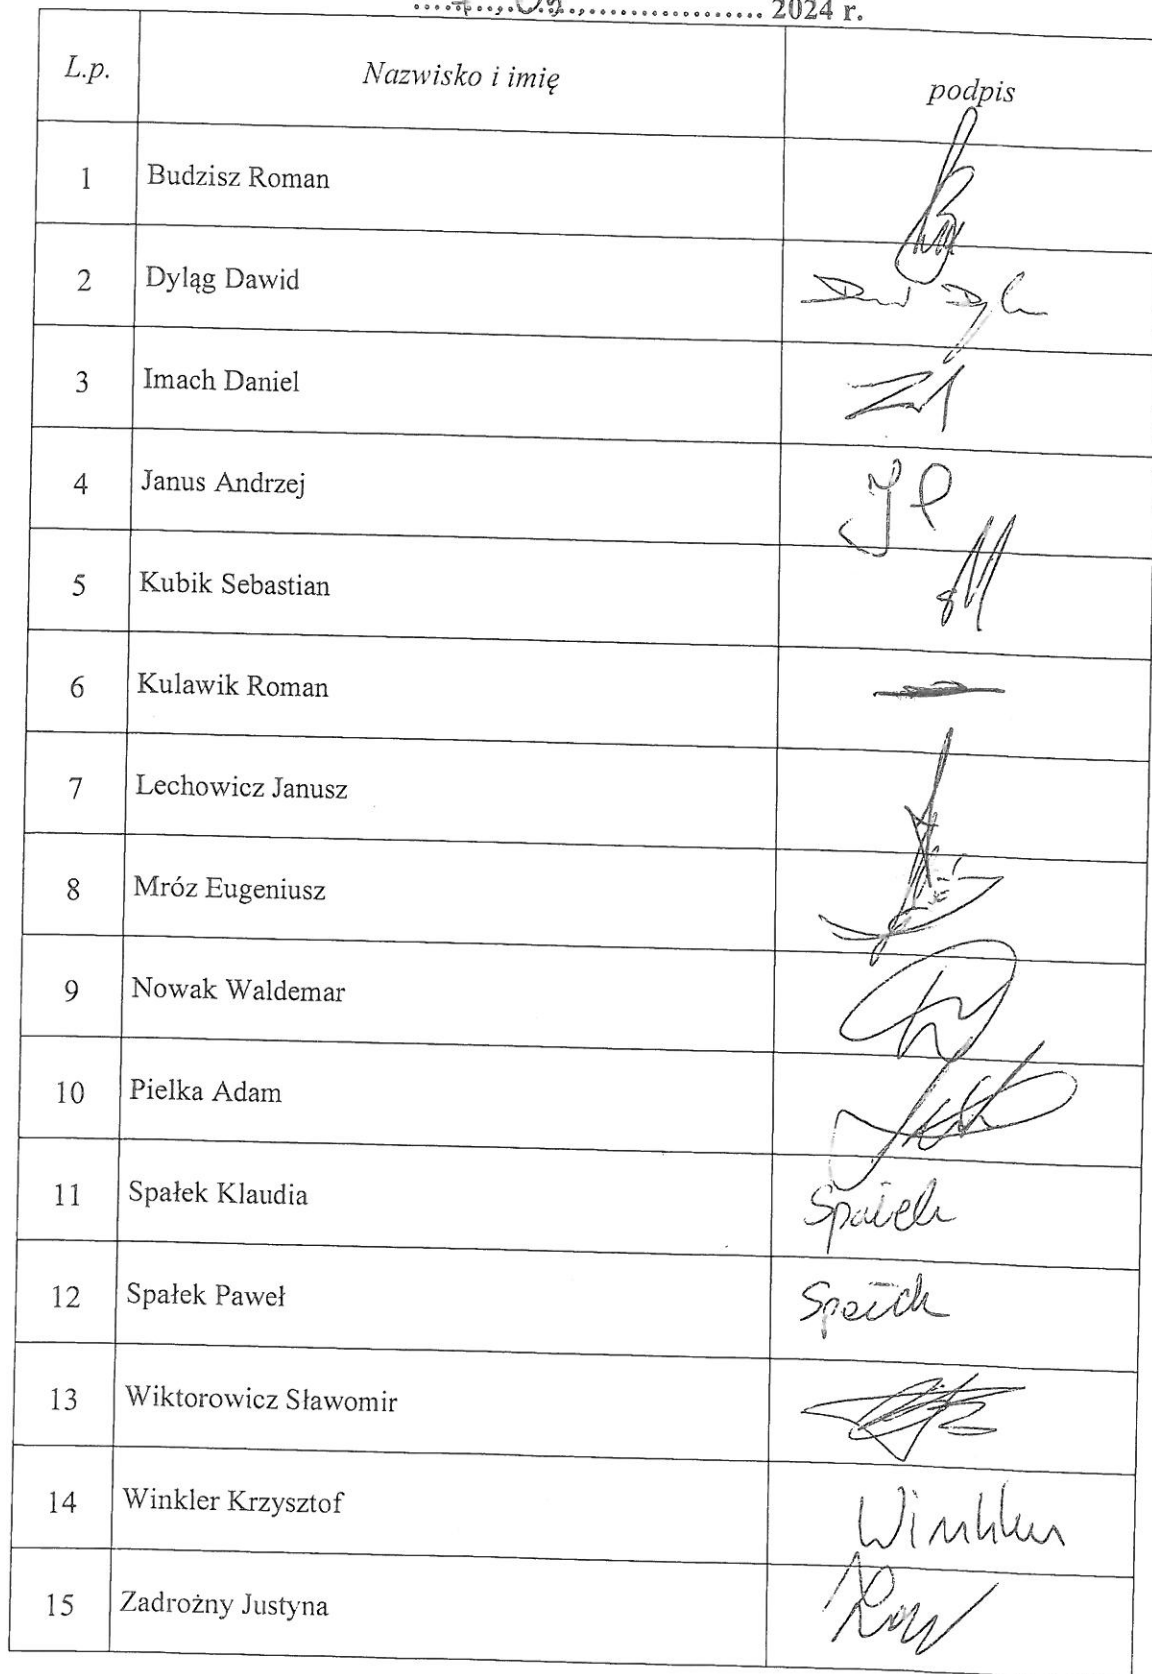 2024 r.
L.p. Nazwisko i imię podpis
1 Budzisz Roman
2 Dyląg Dawid
3 Imach Daniel
4 Janus Andrzej
5 Kubik Sebastian
6 Kulawik Roman
7 Lechowicz Janusz
8 Mróz Eugeniusz
9 Nowak Waldemar
10 Pielka Adam
11 Spałek Klaudia Spałek
12 Spałek Paweł Spałek
13 Wiktorowicz Sławomir
14 Winkler Krzysztof Winkler
15 Zadrożny Justyna